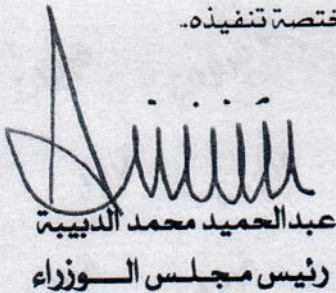 ختصة تنفيذه.
عبدالحميد محمد الدبيبة
رئيس مجلس الـوزراء